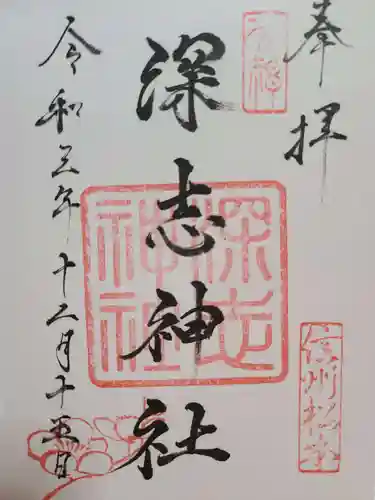 奉拝
深志神社
令和三年十二月十五日
深志神社
信州松本